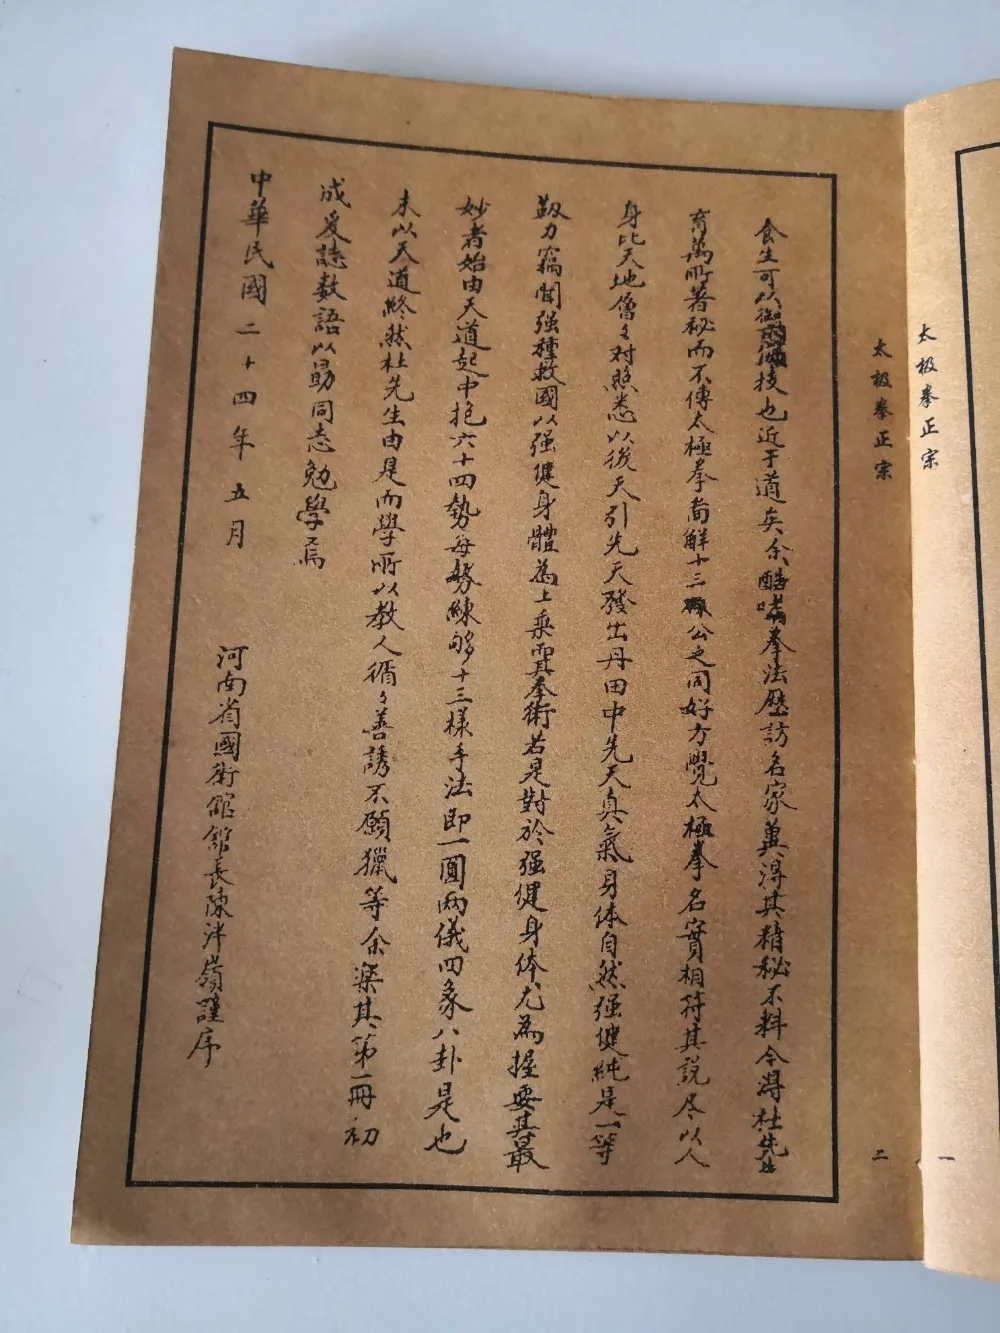 太极拳正宗
一
太极拳正宗
二
食生可以御技也近于道矣余酷嗜拳法歷訪名家冀得其精秘不料今得杜先生
育萬所著秘而不傳太極拳啚解十三公之同好方覺太極拳名實相符其說尽以人
身比天地層々对照悉以後天引先天發出丹田中先天真氣身体自然强健純是一等
毅力竊聞强種救國以强健身體為上乘習拳術若是對於强健身体尤為握要其最
妙者始由天道起中抱六十四勢每勢練够十三樣手法即一圓両儀四象八卦是也
末以天道終然杜先生由是而學所以教人循々善誘不願獵等余樂其第一冊初
成爰誌数語以勗同志勉學焉
中華民國二十四年五月
河南省國術館館長陳泮嶺謹序